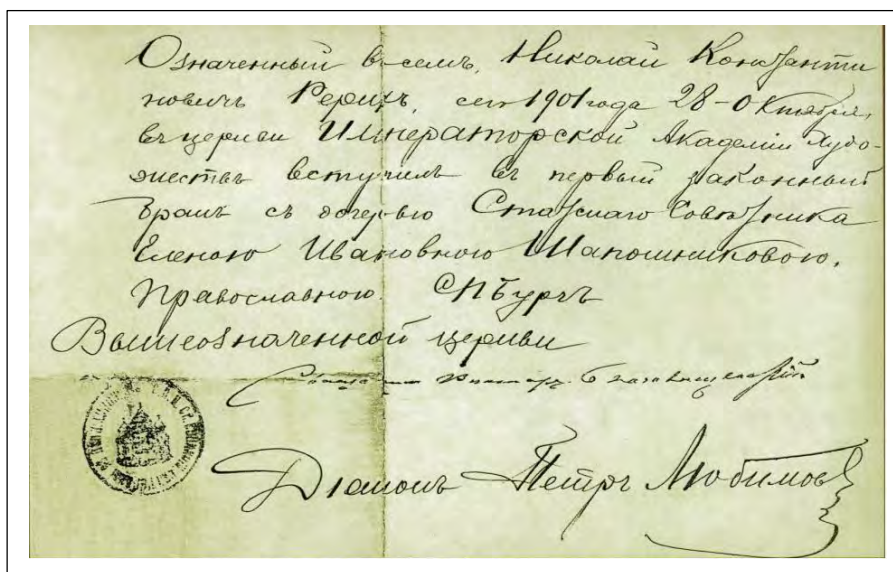 Означенный в семъ, Николай Константи
новичъ Рерихъ, сего 1901 года 28-Октября,
въ церкви Императорской Академіи Худо-
жествъ вступилъ въ первый законный
бракъ съ дочерью Статскаго Совѣтника
Еленою Ивановною Шапошниковою,
Православною. СПБургъ
Вышеозначенной церкви
Священникъ Благовѣщенскій
Діаконъ Петръ Любимовъ